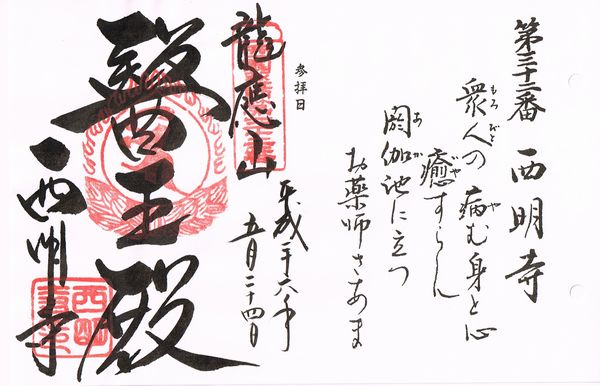 第三十二番 西明寺
衆人の 病む身と心
もろびと や
癒すらん
閼伽池に立つ
お薬師さあま
参拝日
平成二十六年
五月二十四日
龍應山
醫王殿
西明寺